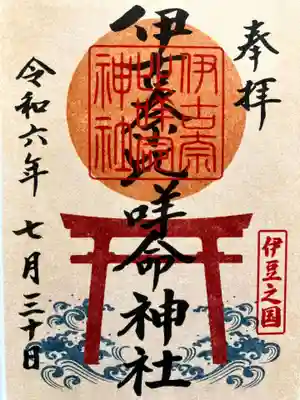 奉拝
伊古奈比咩命神社
伊古奈
比咩命
神社
令和六年 七月三十日
伊豆之国